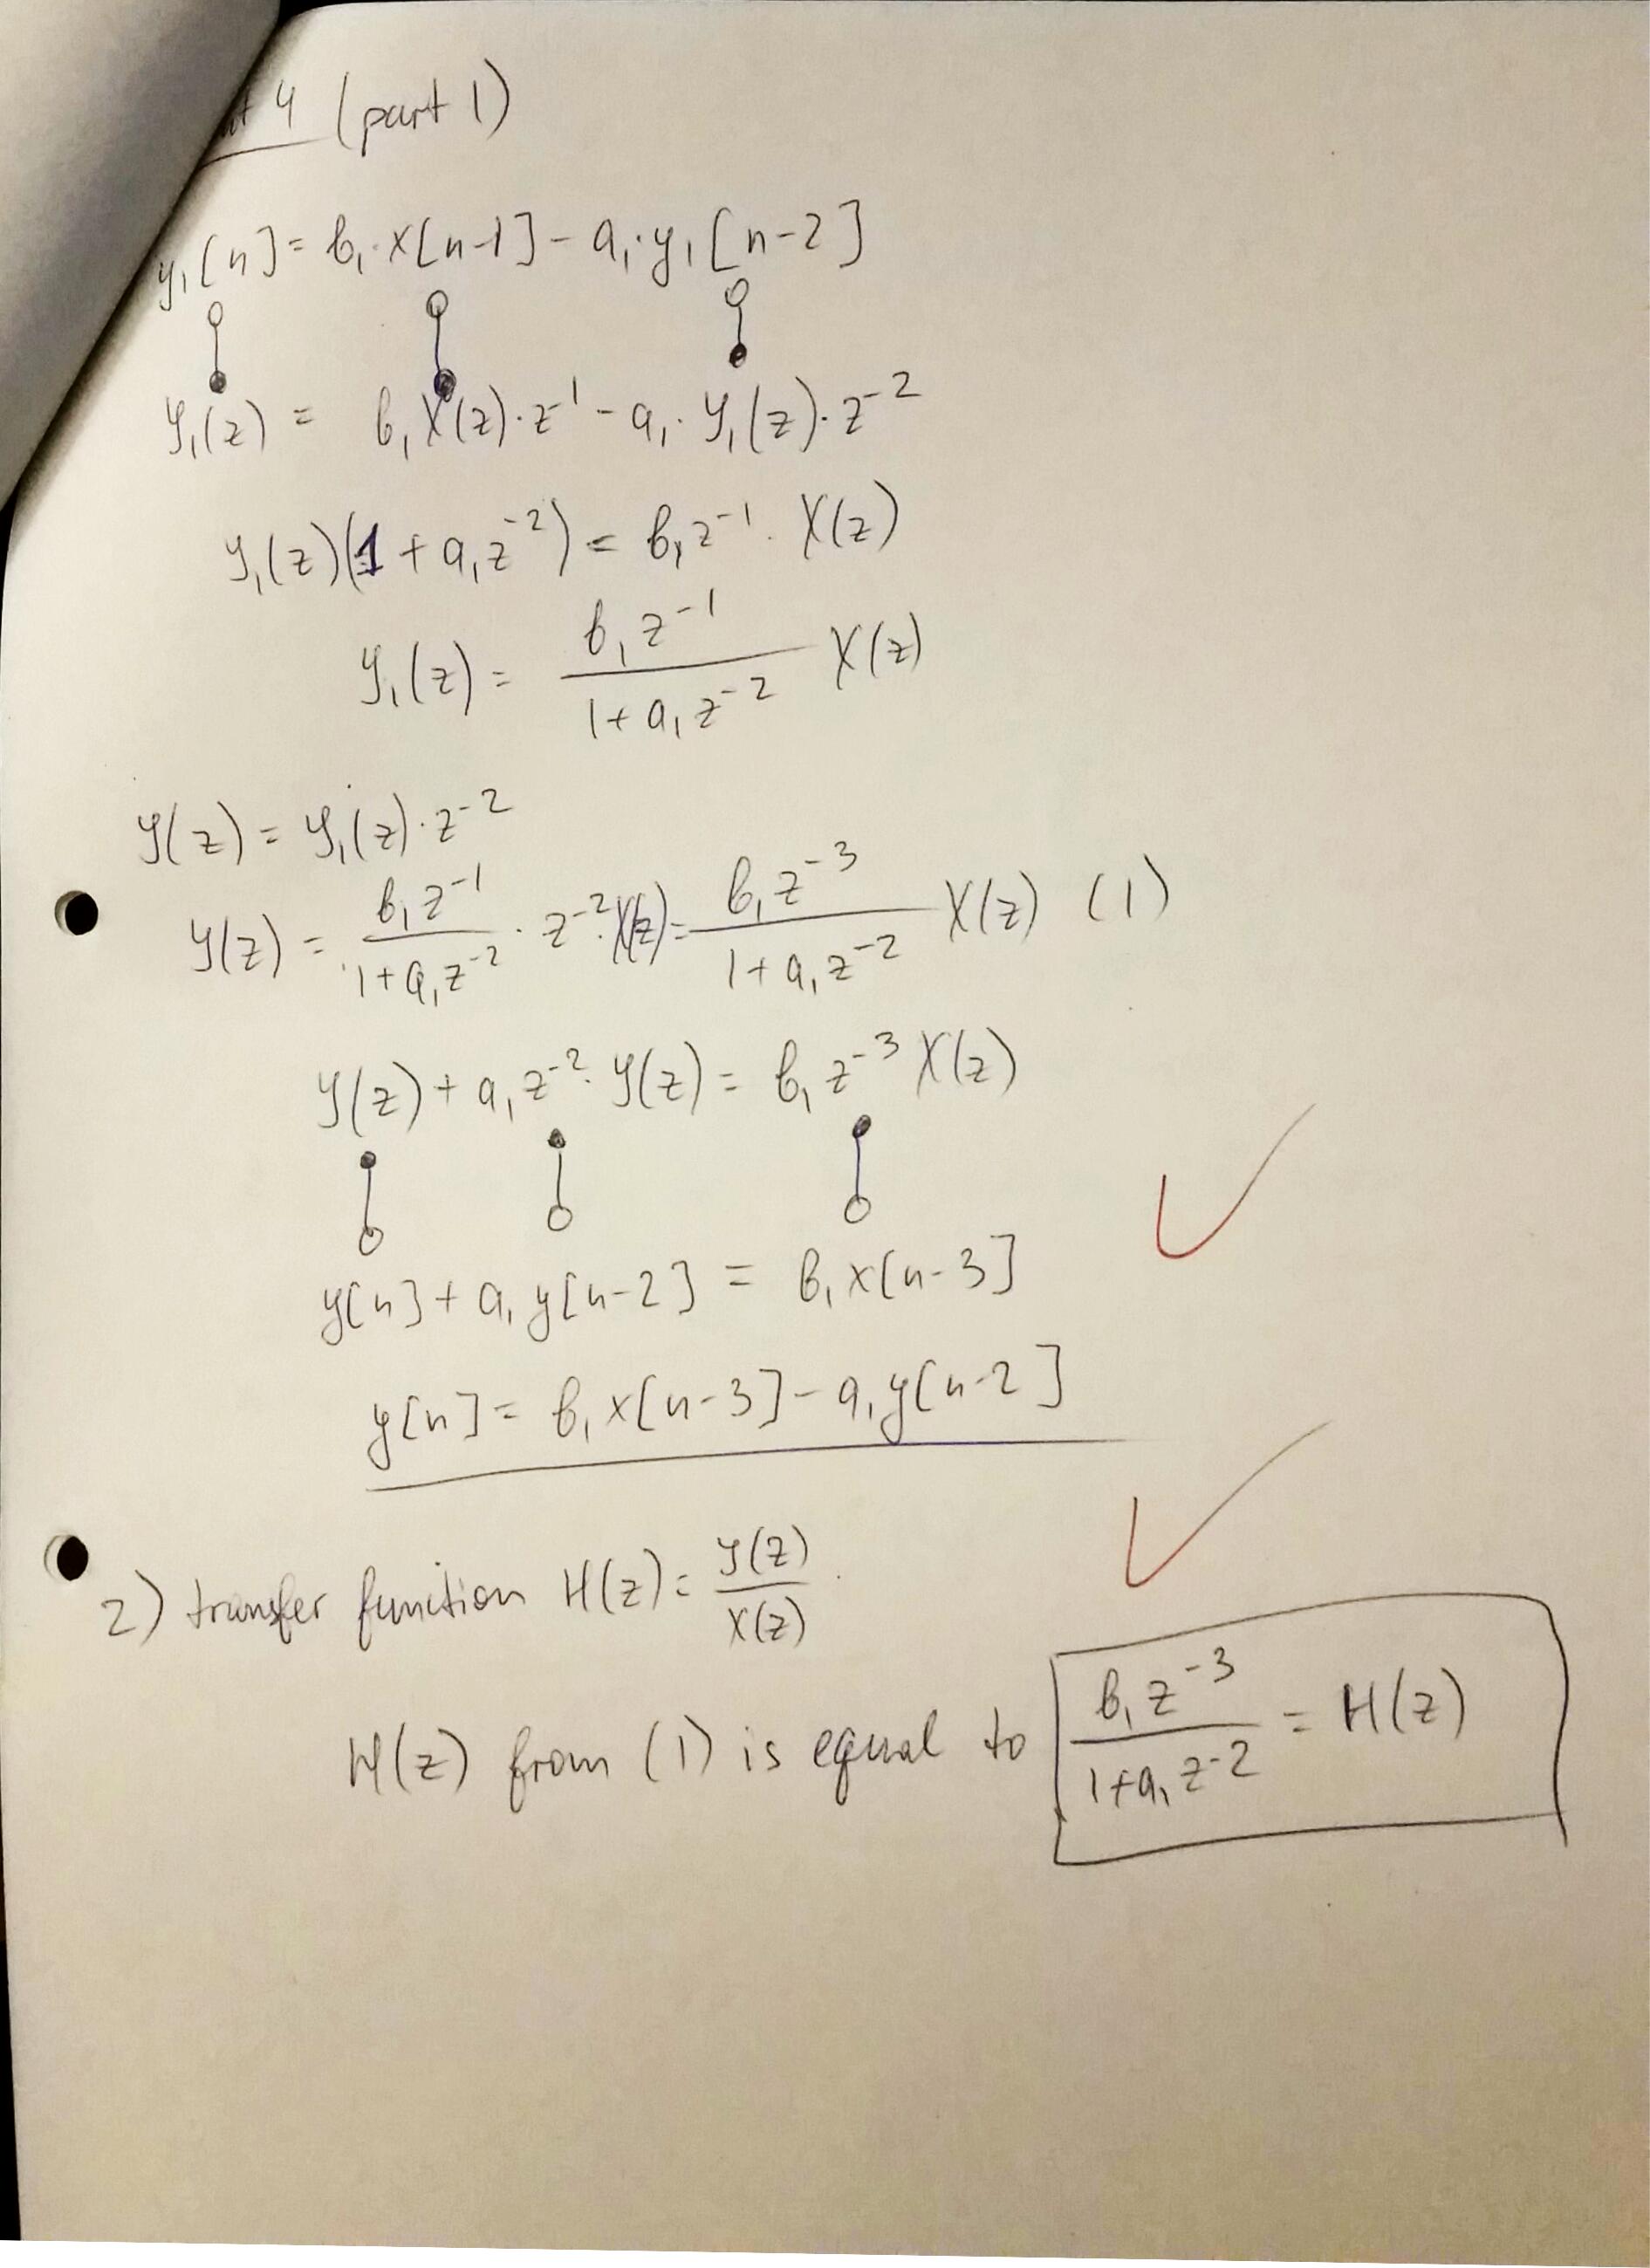 4 (part 1)
y₁[n] = b₁·x[n-1] - a₁·y₁[n-2]
Y₁(z) = b₁X(z)·z⁻¹ - a₁·Y₁(z)·z⁻²
Y₁(z)(1 + a₁z⁻²) = b₁z⁻¹·X(z)
Y₁(z) = (b₁z⁻¹)/(1+a₁z⁻²) X(z)
Y(z) = Y₁(z)·z⁻²
Y(z) = (b₁z⁻¹)/(1+a₁z⁻²)·z⁻²·X(z) = (b₁z⁻³)/(1+a₁z⁻²) X(z) (1)
Y(z) + a₁z⁻²·Y(z) = b₁z⁻³X(z)
y[n] + a₁y[n-2] = b₁x[n-3]
y[n] = b₁x[n-3] - a₁y[n-2]
2) transfer function H(z) = Y(z)/X(z)
H(z) from (1) is equal to (b₁z⁻³)/(1+a₁z⁻²) = H(z)